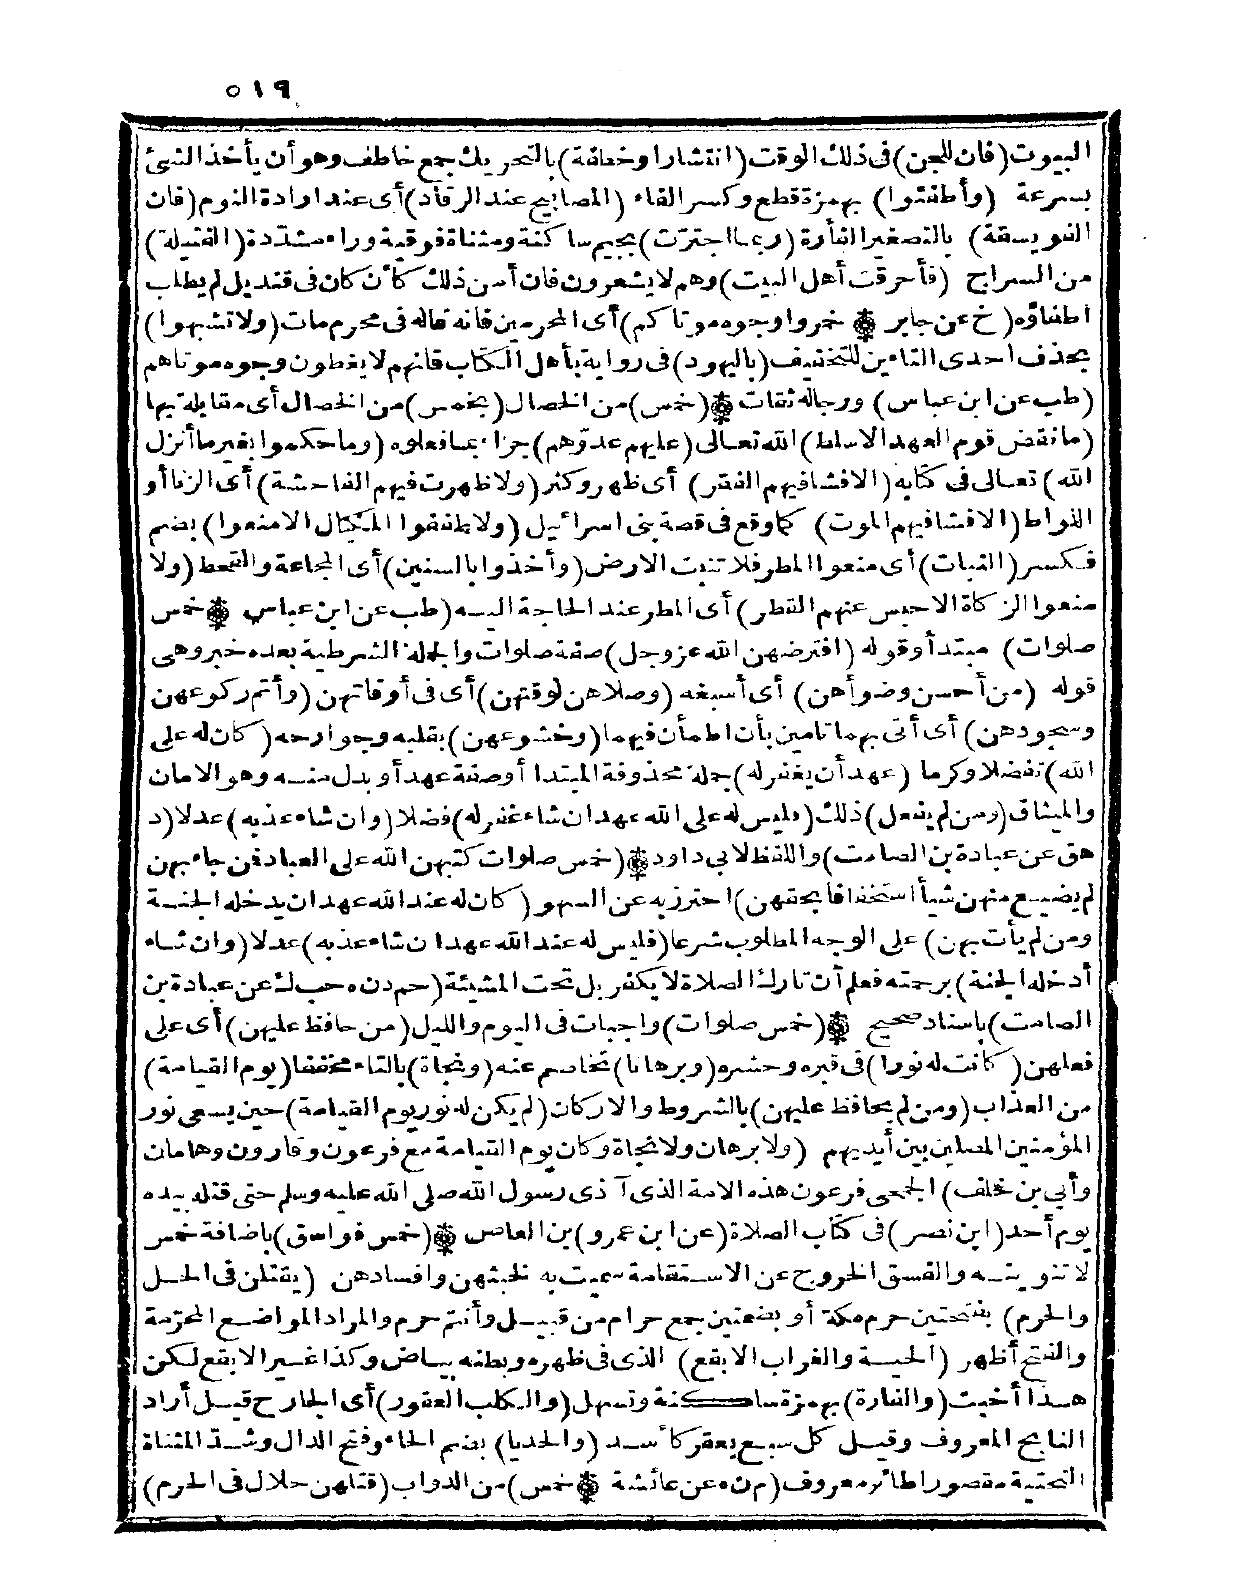 ٥١٩
البيوت (فان للجن) فى ذلك الوقت (انتشارا وخطفة) بالتحريك جمع خاطف وهو أن يأخذ الشئ
بسرعة (وأطفئوا) بهمزة قطع وكسر الفاء (المصابيح عند الرقاد) أى عند ارادة النوم (فان
الفويسقة) بالتصغير الفأرة (ربما اجترّت) بجيم ساكنة ومثناة فوقية وراء مشدّدة (الفتيلة)
من السراج (فأحرقت أهل البيت) وهم لا يشعرون فان أمن ذلك كأن كان فى قنديل لم يطلب
اطفاؤه (خ عن جابر ۞ خمروا وجوه موتاكم) أى المحرمين فانه قاله فى محرم مات (ولا تشبهوا)
بحذف احدى التاءين للتخفيف (باليهود) فى رواية بأهل الكتاب فانهم لا يغطون وجوه موتاهم
(طب عن ابن عباس) ورجاله ثقات ۞ (خمس) من الخصال (بخمس) من الخصال أى مقابلة بها
(ما نقض قوم العهد الا سلط) الله تعالى (عليهم عدوّهم) جزاء بما فعلوه (وما حكموا بغير ما أنزل
الله) تعالى فى كتابه (الا فشا فيهم الفقر) أى ظهر وكثر (ولا ظهرت فيهم الفاحشة) أى الزنا أو
اللواط (الا فشا فيهم الموت) كما وقع فى قصة بنى اسرائيل (ولا طففوا المكيال الا منعوا) بضم
فكسر (النبات) أى منعوا المطر فلا تنبت الارض (وأخذوا بالسنين) أى المجاعة والقحط (ولا
منعوا الزكاة الا حبس عنهم القطر) أى المطر عند الحاجة اليه (طب عن ابن عباس ۞ خمس
صلوات) مبتدأ وقوله (افترضهن الله عز وجل) صفة صلوات والجملة الشرطية بعده خبر وهى
قوله (من أحسن وضوأهن) أى أسبغه (وصلاهن لوقتهن) أى فى أوقاتهن (وأتم ركوعهن
وسجودهن) أى أتى بهما تامين بأن اطمأن فيهما (وخشوعهن) بقلبه وجوارحه (كان له على
الله) تفضلا وكرما (عهد أن يغفر له) جملة محذوفة المبتدا أو صفة عهد أو بدل منه وهو الامان
والميثاق (ومن لم يفعل) ذلك (فليس له على الله عهد ان شاء غفر له) فضلا (وان شاء عذبه) عدلا (د
هق عن عبادة بن الصامت) واللفظ لابى داود ۞ (خمس صلوات كتبهن الله على العباد فمن جاء بهن
لم يضيع منهن شيأ استخفافا بحقهن) احترز به عن السهو (كان له عند الله عهد ان يدخله الجنة
ومن لم يأت بهن) على الوجه المطلوب شرعا (فليس له عند الله عهد ان شاء عذبه) عدلا (وان شاء
أدخله الجنة) برحمته فعلم أن تارك الصلاة لا يكفر بل تحت المشيئة (حم د ن ه حب ك عن عبادة بن
الصامت) باسناد صحيح ۞ (خمس صلوات) واجبات فى اليوم والليل (من حافظ عليهن) أى على
فعلهن (كانت له نورا) فى قبره وحشره (وبرهانا) تخاصم عنه (ونجاة) بالتاء مخففا (يوم القيامة)
من العذاب (ومن لم يحافظ عليهن) بالشروط والاركان (لم يكن له نور يوم القيامة) حين يسعى نور
المؤمنين المصلين بين أيديهم (ولا برهان ولا نجاة وكان يوم القيامة مع فرعون وقارون وهامان
وأبي بن خلف) الجمحى فرعون هذه الامة الذى آذى رسول الله صلى الله عليه وسلم حتى قتله بيده
يوم أحد (ابن نصر) فى كتاب الصلاة (عن ابن عمرو) بن العاص ۞ (خمس فواسق) باضافة خمس
لا تنوينه والفسق الخروج عن الاستقامة سميت به لخبثهن وافسادهن (يقتلن فى الحل
والحرم) بفتحتين حرم مكة أو بضمتين جمع حرام من قبيل وأنتم حرم والمراد المواضع المحرّمة
والفتح أظهر (الحية والغراب الابقع) الذى فى ظهره وبطنه بياض وكذا غير الابقع لكن
هذا أخبث (والفارة) بهمزة ساكنة وتسهل (والكلب العقور) أى الجارح قيل أراد
النابح المعروف وقيل كل سبع يعقر كأسد (والحديا) بضم الحاء وفتح الدال وشد المثناة
التحتية مقصورا طائر معروف (م ن ه عن عائشة ۞ خمس) من الدواب (قتلهن حلال فى الحرم)